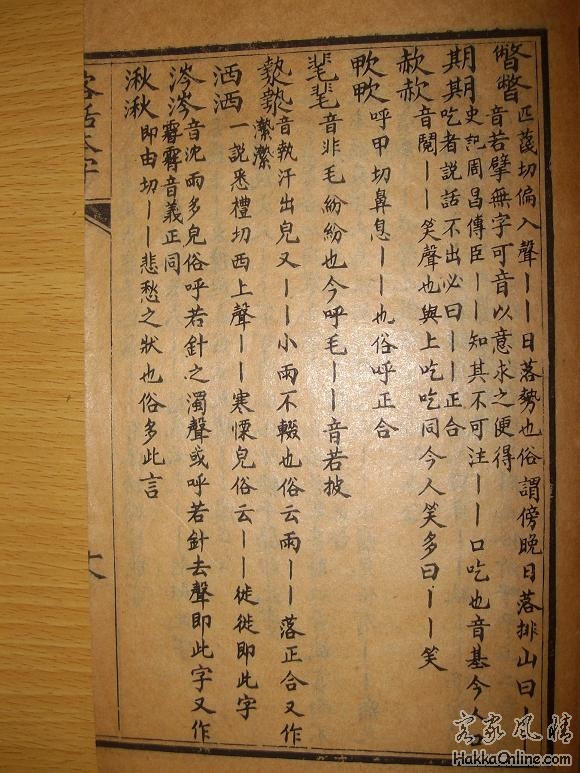 匹蔑切偏入聲丨丨日落勢也俗謂傍晚日落排山曰丨
音若擘無字可音以意求之便得
期期史記周昌傳臣丨丨知其不可注丨丨口吃也音基今人
吃者說話不出必曰丨丨正合
赥赥音鬩丨丨笑聲也與上吃吃同今人笑多曰丨丨笑
呼甲切鼻息丨丨也俗呼正合
音非毛紛紛也今呼毛丨丨音若披
漐漐音執汗出皃又丨丨小雨不輟也俗云雨丨丨落正合又作
洒洒一說悉禮切西上聲丨丨寒慄皃俗云丨丨徙徙即此字
涔涔音沈雨多皃俗呼若針之濁聲或呼若針去聲即此字又作
音義正同
湫湫即由切丨丨悲愁之狀也俗多此言
客話本字
客家風情
HakkaOnline.com